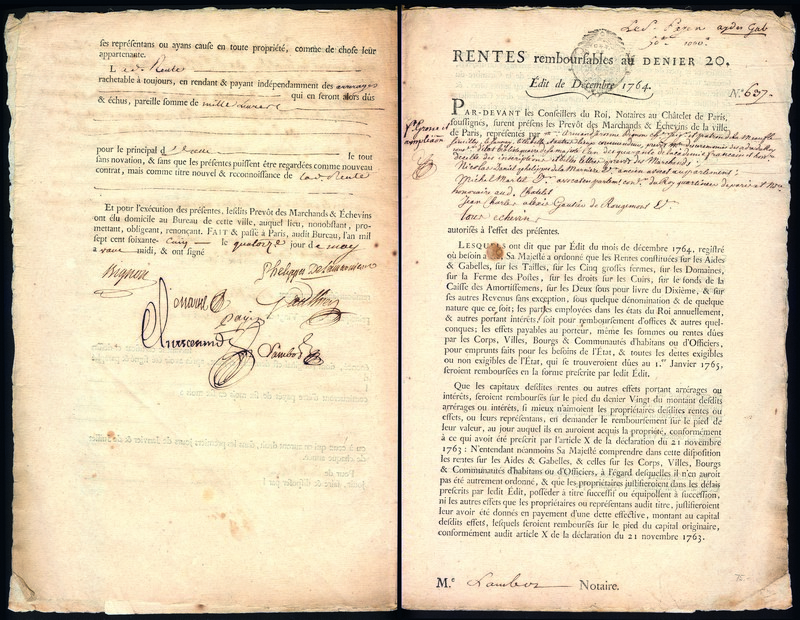 ses représentans ou ayans cause en toute propriété, comme de chose leur
appartenante.
L ad. Rente
rachetable à toujours, en rendant & payant indépendamment des arrérages
qui en seront alors dûs
& échus, pareille somme de mille livres
pour le principal d'icelle le tout
sans novation, & sans que les présentes puissent être regardées comme nouveau
contrat, mais comme titre nouvel & reconnoissance de lad. Rente
Et pour l'exécution des présentes, lesdits Prevôt des Marchands & Échevins
ont élu domicile au Bureau de cette ville, auquel lieu, nonobstant, pro-
mettant, obligeant, renonçant. FAIT & passé à Paris, audit Bureau, l'an mil
sept cent soixante- Cinq le quatorze jour de may
a vant midi, & ont signé
Bignon
Phelippes Delamarniere
Martel
Gauthier
Lambot
Led. Pezon aydes Gab
RENTES remboursables au DENIER 20.
Édit de Décembre 1764.
N.º 637.
PAR-DEVANT les Conseillers du Roi, Notaires au Châtelet de Paris,
soussignés, furent présens les Prevôt des Marchands & Échevins de la ville,
de Paris, représentés par
Prevôt des Marchands
ancien avocat au parlement;
Michel Martel avocat en parlement
honoraire aud. Chatelet
Jean Charles alexis Gautier de Rougemont
tous echevins
autorisés à l'effet des présentes.
LESQUELS ont dit que par Édit du mois de décembre 1764, registré
où besoin a Sa Majesté a ordonné que les Rentes constituées sur les Aides
& Gabelles, sur les Tailles, sur les Cinq grosses fermes, sur les Domaines,
sur la Ferme des Postes, sur les droits sur les Cuirs, sur le fonds de la
Caisse des Amortissemens, sur les Deux sous pour livre du Dixième, & sur
ses autres Revenus sans exception, sous quelque dénomination & de quelque
nature que ce soit; les parties employées dans les états du Roi annuellement,
& autres portant intérêts, soit pour remboursement d'offices & autres quel-
conques; les effets payables au porteur, même les sommes ou rentes dûes
par les Corps, Villes, Bourgs & Communautés d'habitans ou d'Officiers,
pour emprunts faits pour les besoins de l'État, & toutes les dettes exigibles
ou non exigibles de l'État, qui se trouveroient dûes au 1.er Janvier 1765,
seroient remboursées en la forme prescrite par ledit Édit.
Que les capitaux desdites rentes ou autres effets portant arrérages ou
intérêts, seroient remboursés sur le pied du denier Vingt du montant desdits
arrérages ou intérêts, si mieux n'aimoient les propriétaires desdites rentes ou
effets, ou leurs représentans, en demander le remboursement sur le pied de
leur valeur, au jour auquel ils en auroient acquis la propriété, conformément
à ce qui avoit été prescrit par l'article X de la déclaration du 21 novembre
1763: N'entendant néanmoins Sa Majesté comprendre dans cette disposition
les rentes sur les Aides & Gabelles, & celles sur les Corps, Villes, Bourgs
& Communautés d'habitans ou d'Officiers, à l'égard desquelles il n'en auroit
pas été autrement ordonné, & que les propriétaires justifieroient dans les délais
prescrits par ledit Édit, posséder à titre successif ou équipollent à succession,
ni les autres effets que les propriétaires ou représentans audit titre, justifieroient
leur avoir été donnés en payement d'une dette effective, montant au capital
desdits effets, lesquels seroient remboursés sur le pied du capital originaire,
conformément audit article X de la déclaration du 21 novembre 1763.
M.e Lambot Notaire.